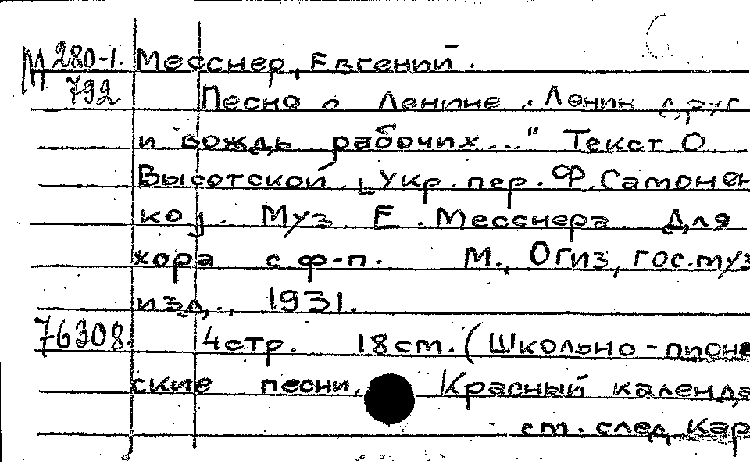 М 280-1. Месснер, Евгений.
792 Песно о Ленине. „Ленин друг
и вождь рабочих..." Текст О.
Высотской. [Укр. пер. Ф. Самонен
ко]. Муз. Е. Месснера. Для
хора с ф-п. М., Огиз, гос. муз
изд., 1931.
76308. 4 стр. 18 ст. (Школьно-пионе
ские песни. Красный календа
см. след. кар